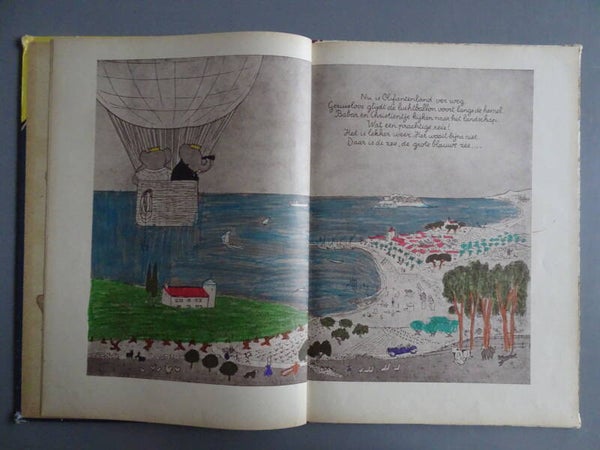 Nu is Olifantenland ver weg.
Geruisloos glijdt de luchtballon voort langs de hemel.
Babar en Christientje kijken naar het landschap.
Wat een prachtige reis!
Het is lekker weer. Het waait bijna niet.
Daar is de zee, de grote blauwe zee....